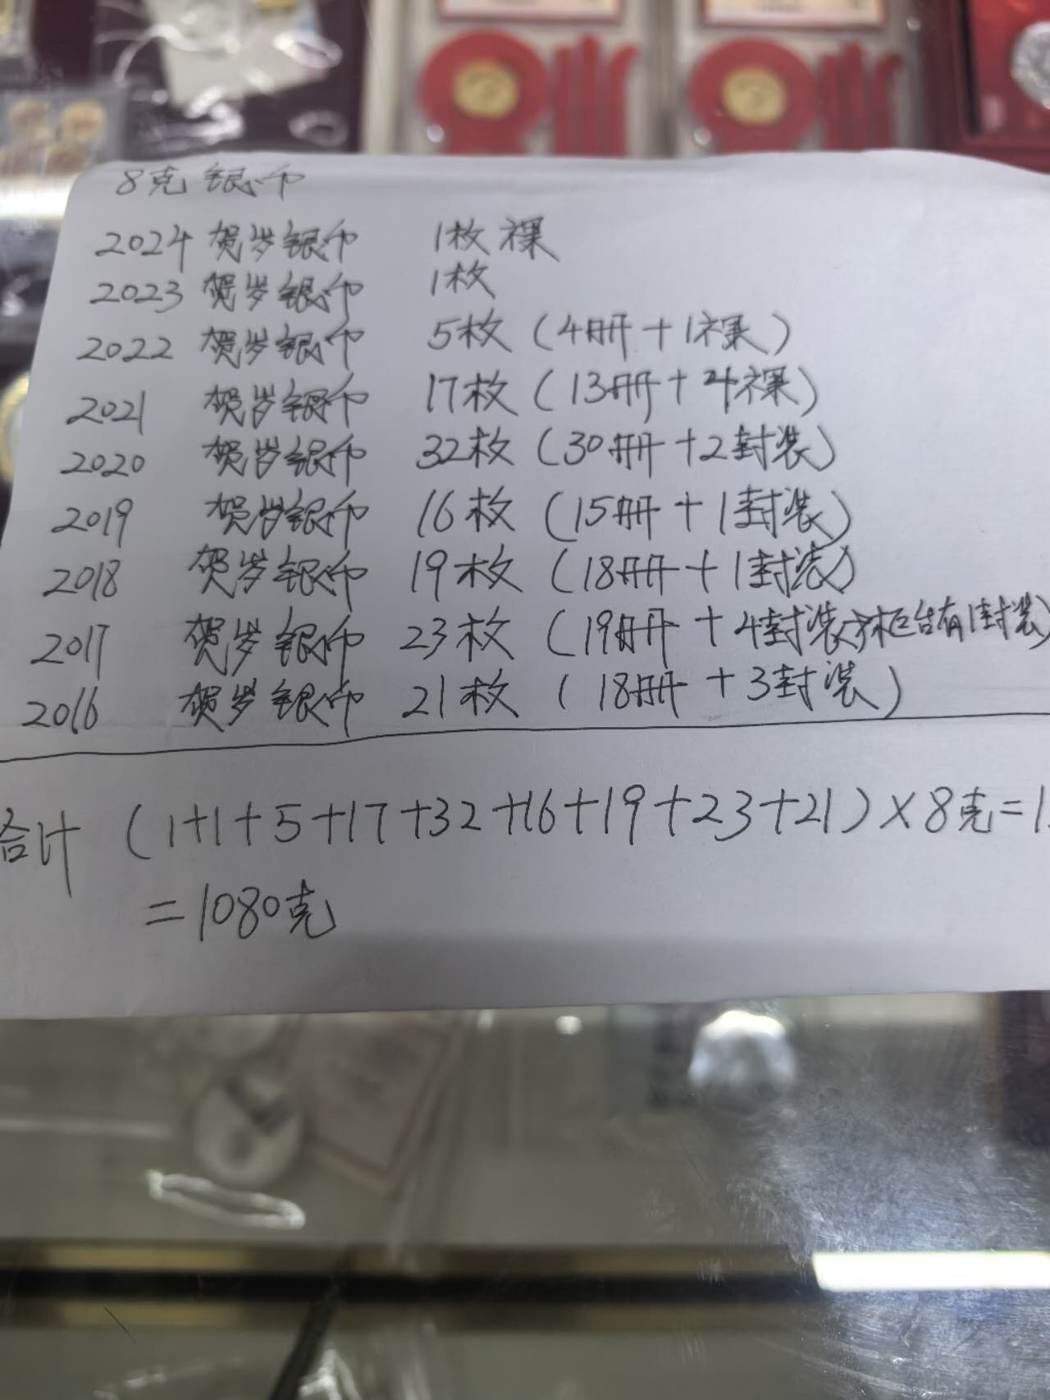 8克银币
2024 贺岁银币 1枚 裸
2023 贺岁银币 1枚
2022 贺岁银币 5枚 (4册+1裸)
2021 贺岁银币 17枚 (13册+4裸)
2020 贺岁银币 32枚 (30册+2封装)
2019 贺岁银币 16枚 (15册+1封装)
2018 贺岁银币 19枚 (18册+1封装)
2017 贺岁银币 23枚 (19册+4封装 柜台有1封装)
2016 贺岁银币 21枚 (18册+3封装)
合计 (1+1+5+17+32+16+19+23+21)×8克=1
=1080克